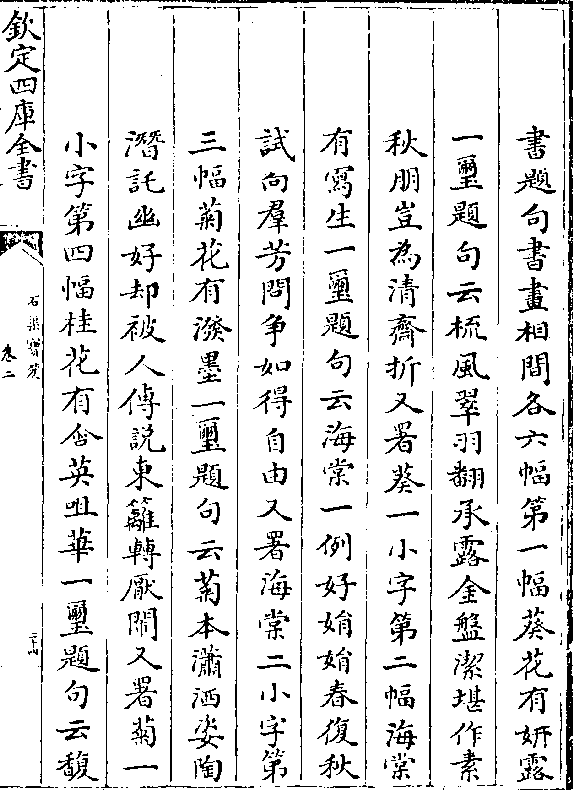 書題句書畫相間各六幅第一幅葵花有妍露
一璽題句云梳風翠羽翻承露金盤潔堪作素
秋朋豈為清齋折又署葵一小字第二幅海棠
有寫生一璽題句云海棠一例好娟娟春復秋
試向羣芳問爭如得自由又署海棠二小字第
三幅菊花有潑墨一璽題句云菊本瀟洒姿陶
潛託幽好却被人傳説東籬轉厭閙又署菊一
小字第四幅桂花有含英咀華一璽題句云馥
欽定四庫全書
石渠寶笈
卷二